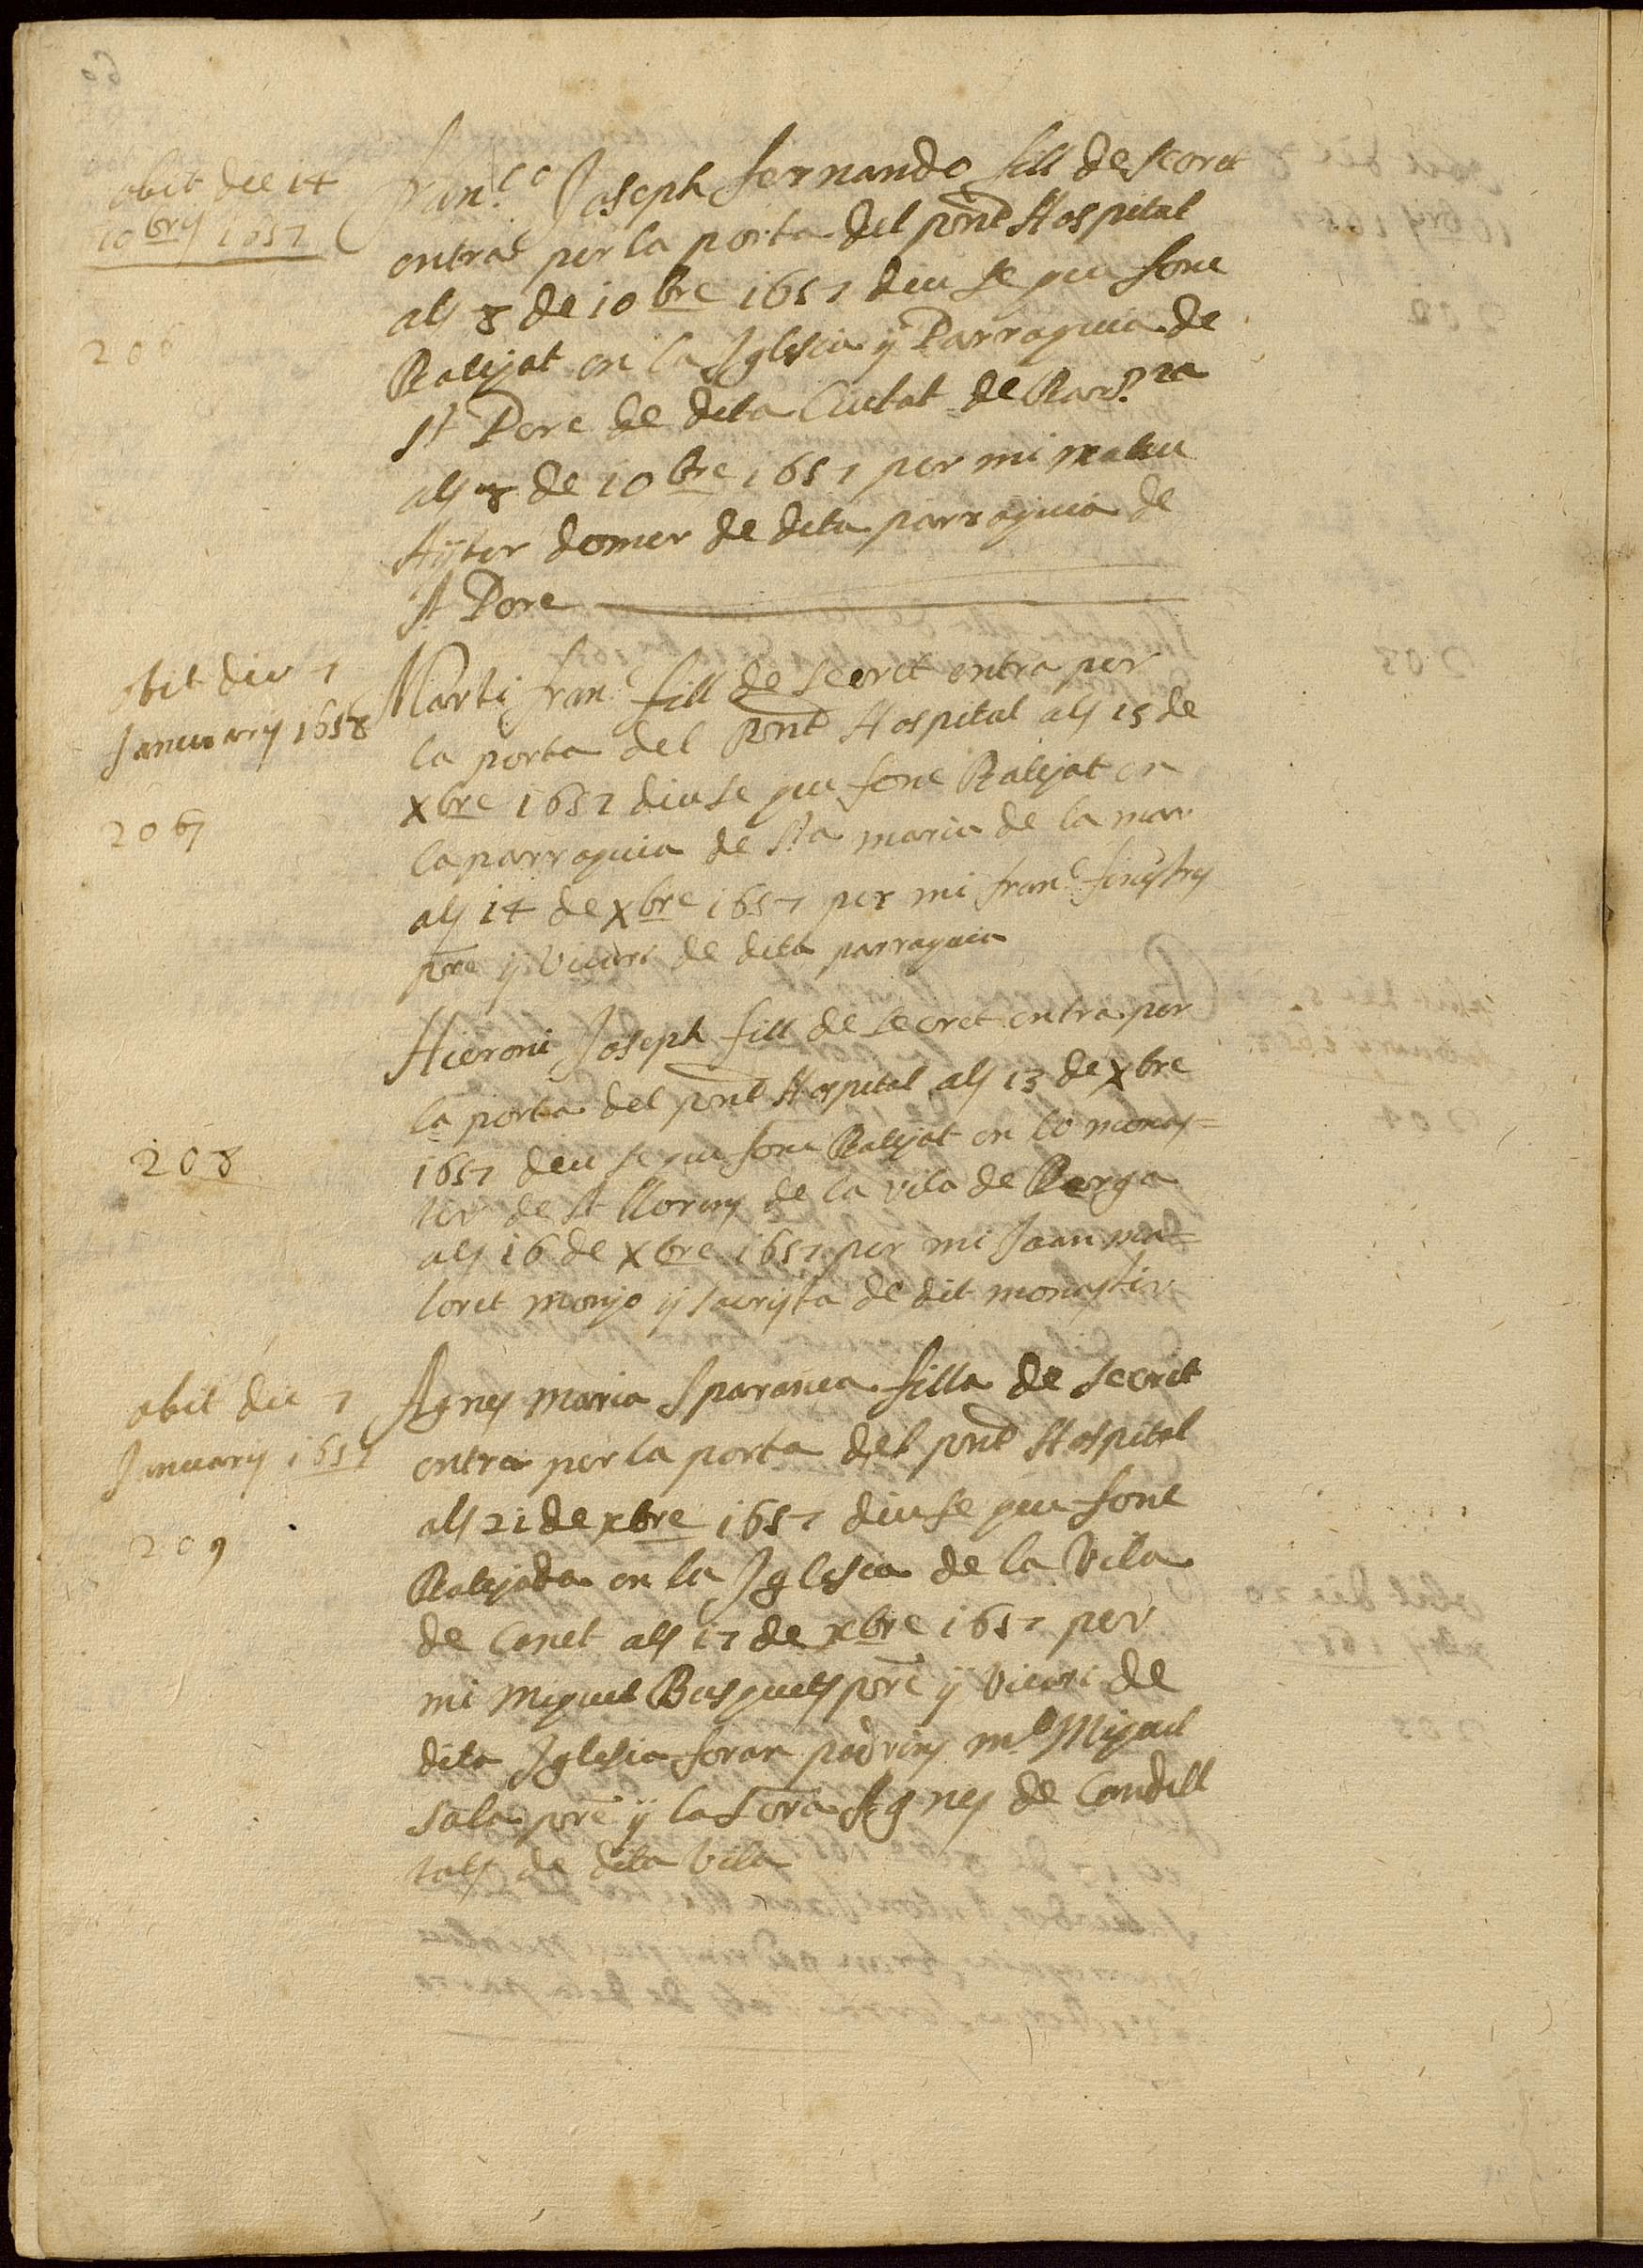 obit die 14
10bris 1657
206
Fran.co Joseph Fernando fill de secret
entra per la porta del pnt Hospital
als 8 de 10bre 1657 diu se que fonc
Batejat en la Iglesia y Parroquia de
St Pere de dita Ciutat de Bar.na
als 8 de 10bre 1657 per mi mateu
domer de dita parroquia de
St Pere
obit die 7
Januarij 1658
207
Marti fran.c fill de secret entra per
la porta del Pnt Hospital als 15 de
xbre 1657 diu se que fonc Batejat en
la parroquia de Sta maria de la mar
als 14 de xbre 1657 per mi fran.c finestres
pre y Vicari de dita parroquia
208
Hieroni Joseph fill de secret entra per
la porta del pnt Hospital als 13 de xbre
1657 diu se que fonc Batejat en lo mones=
tir de St Llorens de la vila de Berga
als 16 de xbre 1657 per mi Joan mont=
loret monjo y sacrista de dit monestir
obit die 7
Januarij 1657
209
Agnes Maria Sparansa filla de secret
entra per la porta del pnt Hospital
als 21 de xbre 1657 diu se que fonc
Batejada en la Iglesia de la Vila
de Canet als 17 de xbre 1657 per
mi Miquel Busquets pre y Vicari de
dita Iglesia foran padrins m.o Miquel
Sala pre y la Sora Agnes de Candell
tots de dita Vila